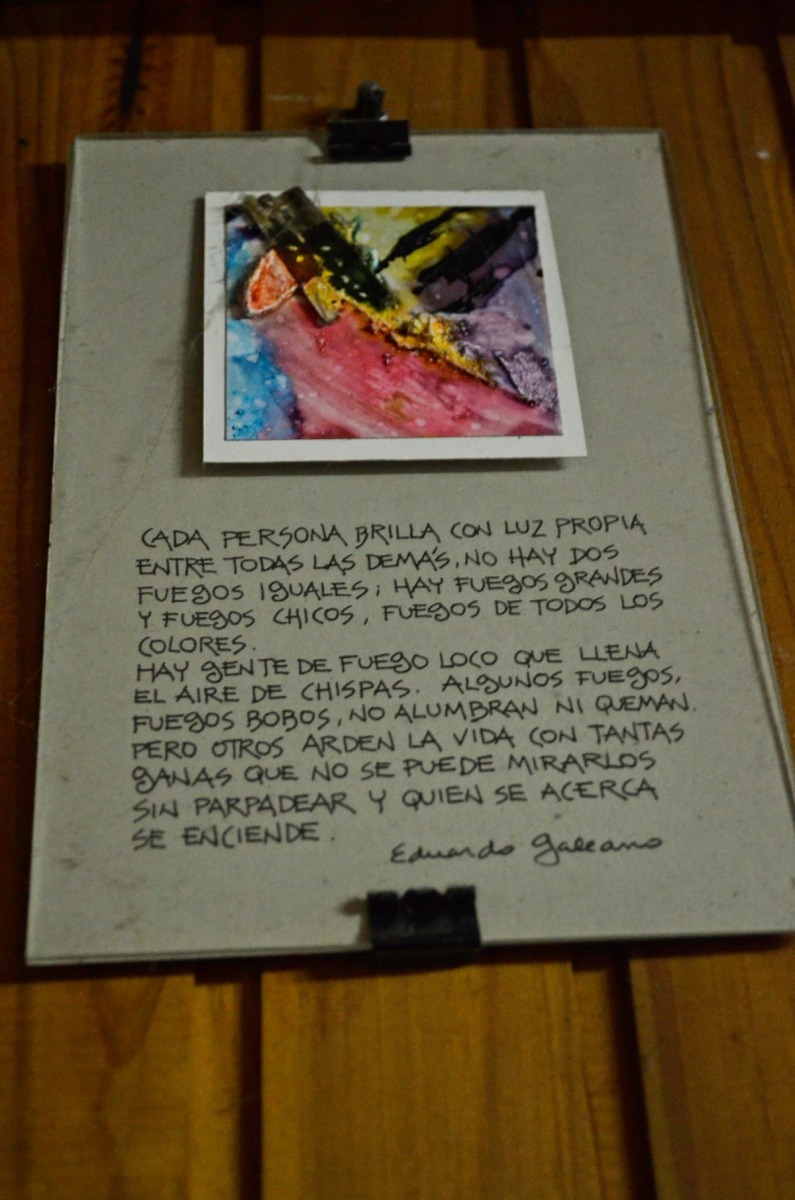 CADA PERSONA BRILLA CON LUZ PROPIA
ENTRE TODAS LAS DEMÁS, NO HAY DOS
FUEGOS IGUALES; HAY FUEGOS GRANDES
Y FUEGOS CHICOS, FUEGOS DE TODOS LOS
COLORES.
HAY GENTE DE FUEGO LOCO QUE LLENA
EL AIRE DE CHISPAS. ALGUNOS FUEGOS,
FUEGOS BOBOS, NO ALUMBRAN NI QUEMAN.
PERO OTROS ARDEN LA VIDA CON TANTAS
GANAS QUE NO SE PUEDE MIRARLOS
SIN PARPADEAR Y QUIEN SE ACERCA
SE ENCIENDE.
Eduardo Galeano